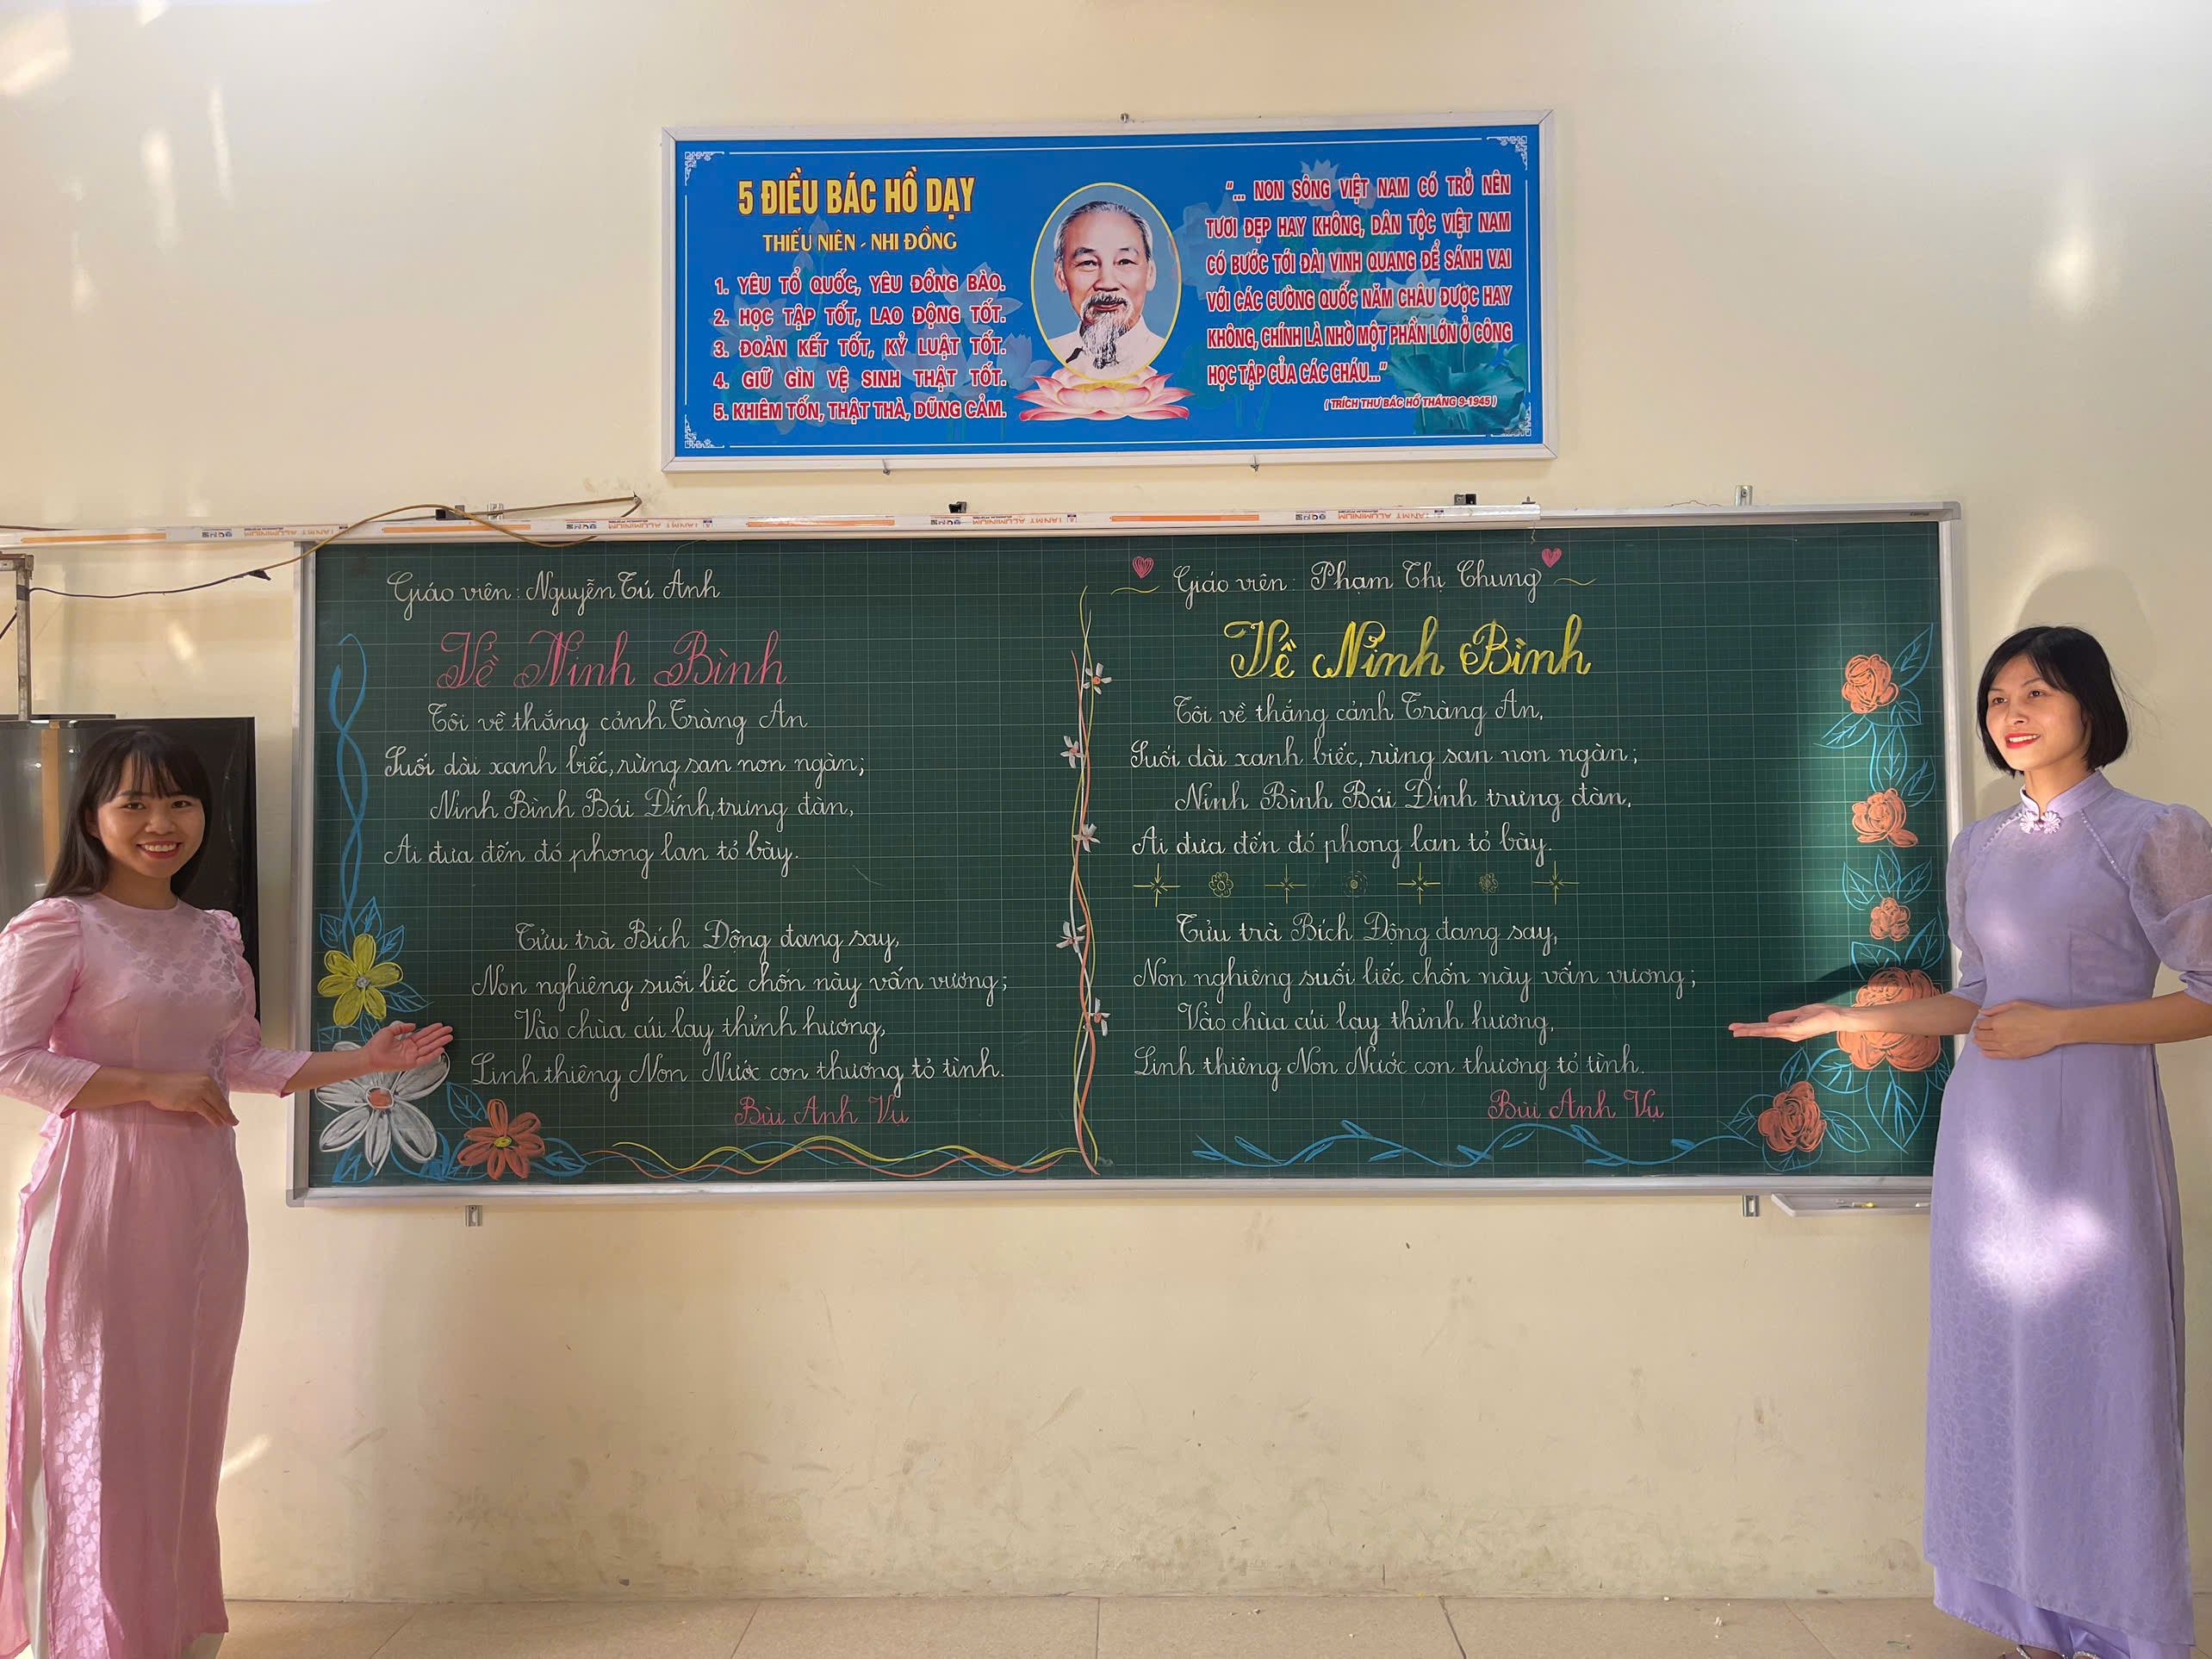 5 ĐIỀU BÁC HỒ DẠY
THIẾU NIÊN - NHI ĐỒNG
1. YÊU TỔ QUỐC, YÊU ĐỒNG BÀO.
2. HỌC TẬP TỐT, LAO ĐỘNG TỐT.
3. ĐOÀN KẾT TỐT, KỶ LUẬT TỐT.
4. GIỮ GÌN VỆ SINH THẬT TỐT.
5. KHIÊM TỐN, THẬT THÀ, DŨNG CẢM.
"... NON SÔNG VIỆT NAM CÓ TRỞ NÊN
TƯƠI ĐẸP HAY KHÔNG, DÂN TỘC VIỆT NAM
CÓ BƯỚC TỚI ĐÀI VINH QUANG ĐỂ SÁNH VAI
VỚI CÁC CƯỜNG QUỐC NĂM CHÂU ĐƯỢC HAY
KHÔNG, CHÍNH LÀ NHỜ MỘT PHẦN LỚN Ở CÔNG
HỌC TẬP CỦA CÁC CHÁU..."
( TRÍCH THƯ BÁC HỒ THÁNG 9-1945 )
Giáo viên: Nguyễn Tú Anh
Về Ninh Bình
Tôi về thắng cảnh Tràng An
Suối dài xanh biếc, rừng san non ngàn;
Ninh Bình Bái Đính, trưng đàn,
Ai đưa đến đó phong lan tỏ bày.
Tửu trà Bích Động đang say,
Non nghiêng suối liếc chốn này vấn vương;
Vào chùa cúi lay thỉnh hương,
Linh thiêng Non Nước con thương tỏ tình.
Bùi Anh Vụ
Giáo viên: Phạm Thị Chung
Về Ninh Bình
Tôi về thắng cảnh Tràng An,
Suối dài xanh biếc, rừng san non ngàn;
Ninh Bình Bái Đính trưng đàn,
Ai đưa đến đó phong lan tỏ bày.
Tửu trà Bích Động đang say,
Non nghiêng suối liếc chốn này vấn vương;
Vào chùa cúi lạy thỉnh hương,
Linh thiêng Non Nước con thương tỏ tình.
Bùi Anh Vụ